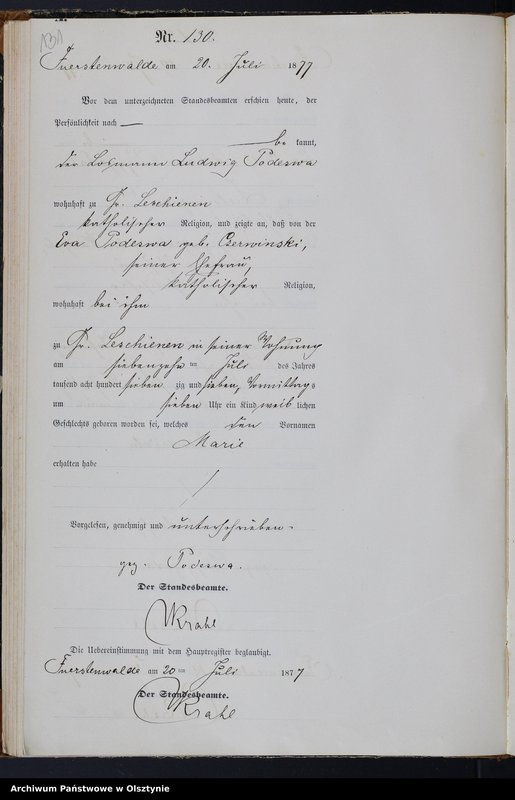 131
Nr. 130.
Fuerstenwalde am 20. Juli 1877
Vor dem unterzeichneten Standesbeamten erschien heute, der
Persönlichkeit nach
be kannt,
der Losmann Ludwig Podeswa
wohnhaft zu Gr. Leschienen
katholischer Religion, und zeigte an, daß von der
Eva Podeswa geb. Czerwinski,
seiner Ehefrau,
katholischer Religion,
wohnhaft bei ihm
zu Gr. Leschienen in seiner Wohnung
am siebenzehn ten Juli des Jahres
tausend acht hundert sieben zig und sieben, Vormittags
um sieben Uhr ein Kind weib lichen
Geschlechts geboren worden sei, welches den Vornamen
Marie
erhalten habe
Vorgelesen, genehmigt und unterschrieben.
gez. Podeswa.
Der Standesbeamte.
Krahl
Die Uebereinstimmung mit dem Hauptregister beglaubigt.
Fuerstenwalde am 20 ten Juli 1877
Der Standesbeamte.
Krahl
Archiwum Państwowe w Olsztynie